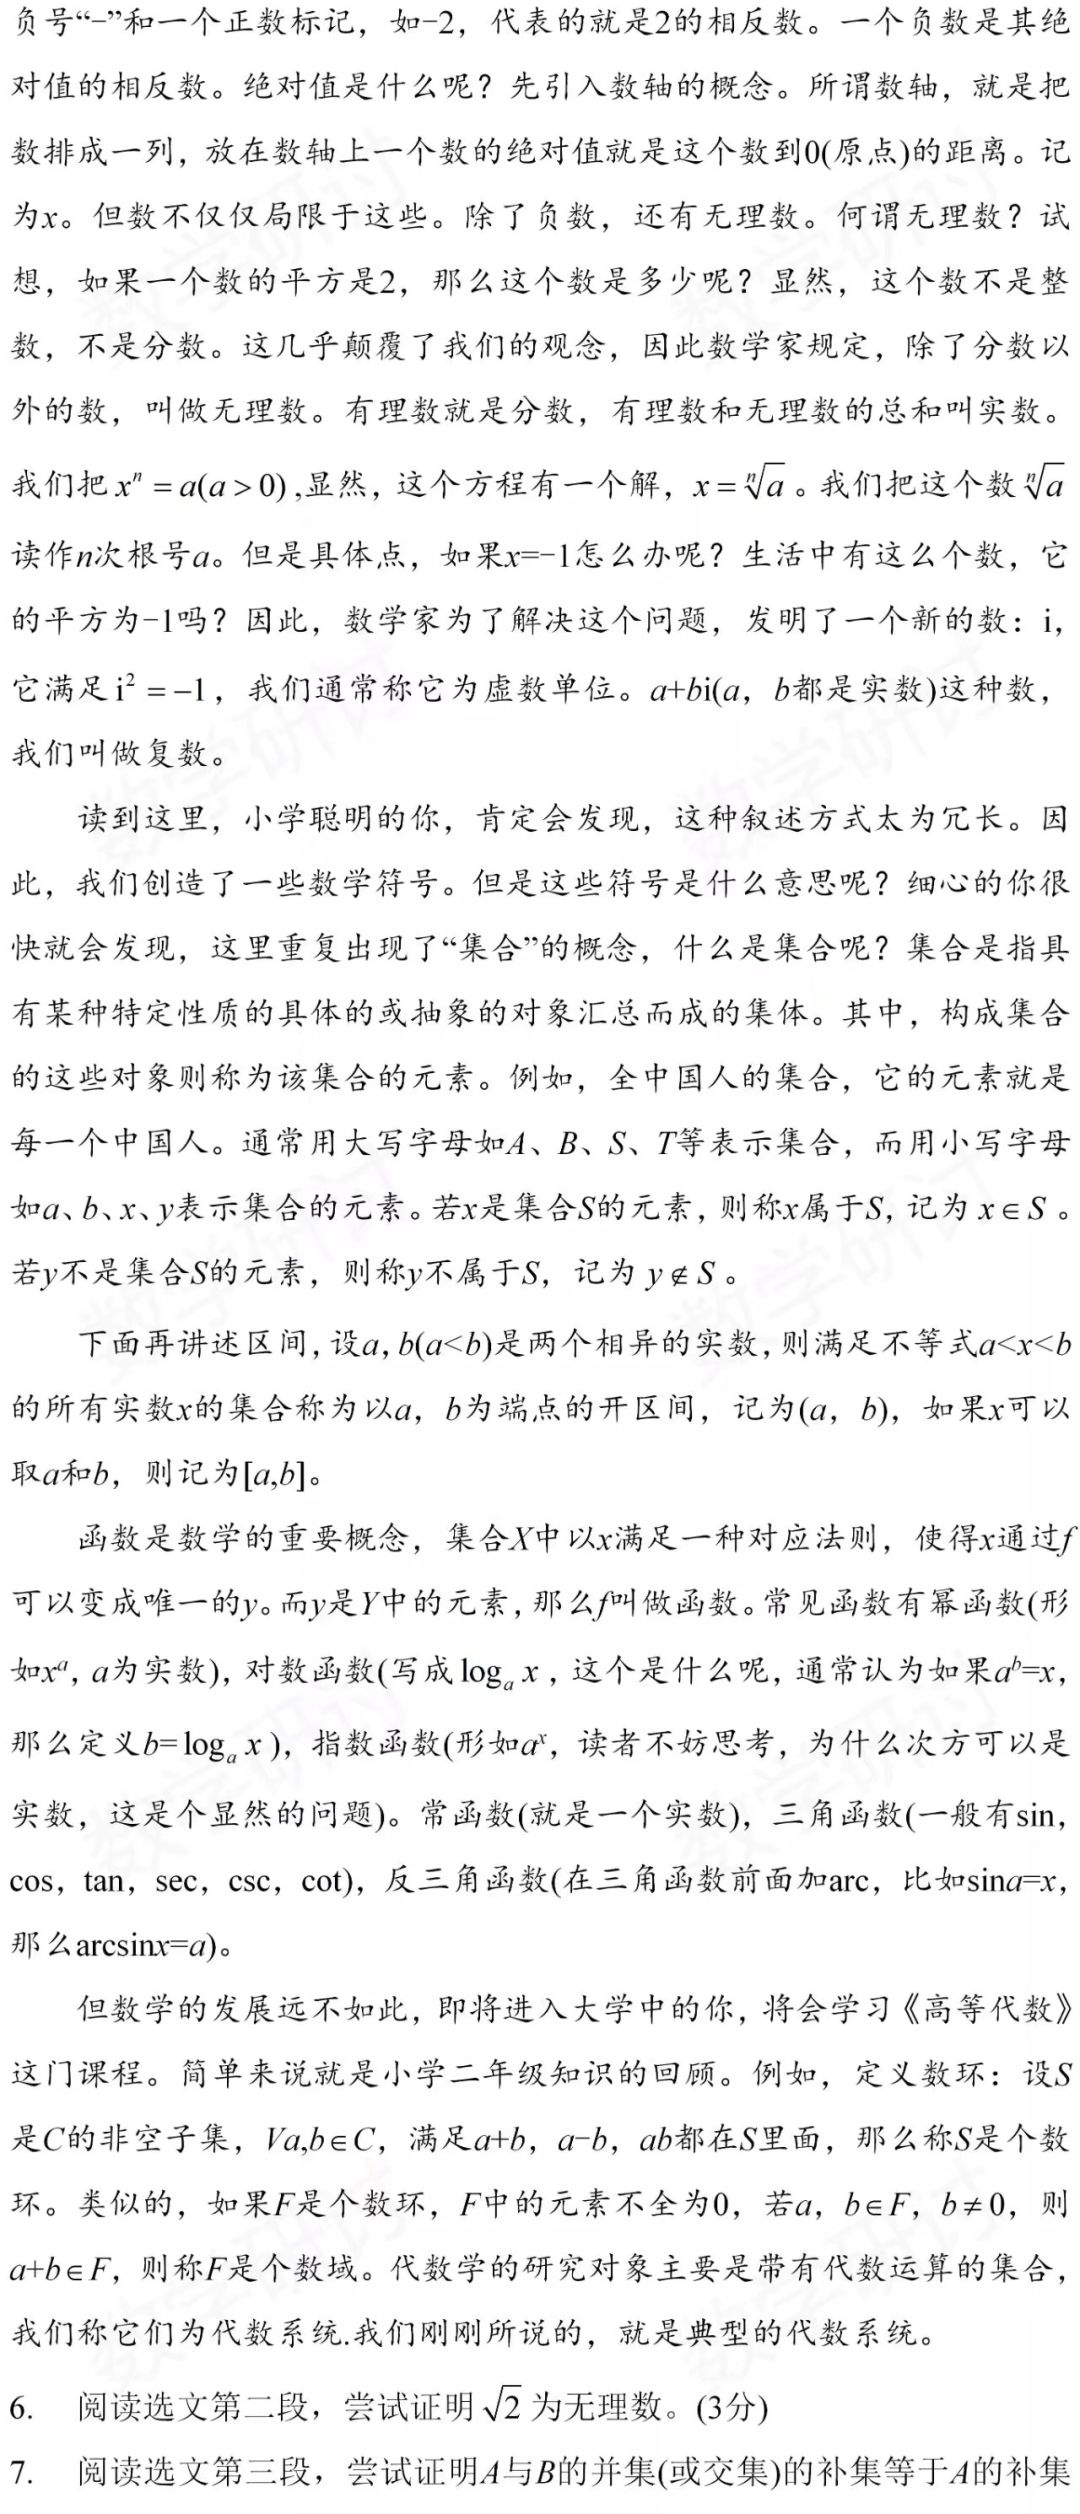 负号“-”和一个正数标记，如-2，代表的就是2的相反数。一个负数是其绝
对值的相反数。绝对值是什么呢？先引入数轴的概念。所谓数轴，就是把
数排成一列，放在数轴上一个数的绝对值就是这个数到0(原点)的距离。记
为x。但数不仅仅局限于这些。除了负数，还有无理数。何谓无理数？试
想，如果一个数的平方是2，那么这个数是多少呢？显然，这个数不是整
数，不是分数。这几乎颠覆了我们的观念，因此数学家规定，除了分数以
外的数，叫做无理数。有理数就是分数，有理数和无理数的总和叫实数。
我们把xⁿ = a(a > 0),显然，这个方程有一个解，x = ⁿ√a。我们把这个数ⁿ√a
读作n次根号a。但是具体点，如果x=-1怎么办呢？生活中有这么个数，它
的平方为-1吗？因此，数学家为了解决这个问题，发明了一个新的数：i，
它满足i² = -1，我们通常称它为虚数单位。a+bi(a，b都是实数)这种数，
我们叫做复数。
读到这里，小学聪明的你，肯定会发现，这种叙述方式太为冗长。因
此，我们创造了一些数学符号。但是这些符号是什么意思呢？细心的你很
快就会发现，这里重复出现了“集合”的概念，什么是集合呢？集合是指具
有某种特定性质的具体的或抽象的对象汇总而成的集体。其中，构成集合
的这些对象则称为该集合的元素。例如，全中国人的集合，它的元素就是
每一个中国人。通常用大写字母如A、B、S、T等表示集合，而用小写字母
如a、b、x、y表示集合的元素。若x是集合S的元素，则称x属于S，记为 x∈S。
若y不是集合S的元素，则称y不属于S，记为 y∉S。
下面再讲述区间，设a，b(a<b)是两个相异的实数，则满足不等式a<x<b
的所有实数x的集合称为以a，b为端点的开区间，记为(a，b)，如果x可以
取a和b，则记为[a,b]。
函数是数学的重要概念，集合X中以x满足一种对应法则，使得x通过f
可以变成唯一的y。而y是Y中的元素，那么f叫做函数。常见函数有幂函数(形
如xᵃ，a为实数)，对数函数(写成logₐ x，这个是什么呢，通常认为如果aᵇ=x，
那么定义b=logₐ x)，指数函数(形如aˣ，读者不妨思考，为什么次方可以是
实数，这是个显然的问题)。常函数(就是一个实数)，三角函数(一般有sin，
cos，tan，sec，csc，cot)，反三角函数(在三角函数前面加arc，比如sina=x，
那么arcsinx=a)。
但数学的发展远不如此，即将进入大学中的你，将会学习《高等代数》
这门课程。简单来说就是小学二年级知识的回顾。例如，定义数环：设S
是C的非空子集，Va,b∈C，满足a+b，a-b，ab都在S里面，那么称S是个数
环。类似的，如果F是个数环，F中的元素不全为0，若a，b∈F，b≠0，则
a+b∈F，则称F是个数域。代数学的研究对象主要是带有代数运算的集合，
我们称它们为代数系统.我们刚刚所说的，就是典型的代数系统。
6. 阅读选文第二段，尝试证明√2为无理数。(3分)
7. 阅读选文第三段，尝试证明A与B的并集(或交集)的补集等于A的补集